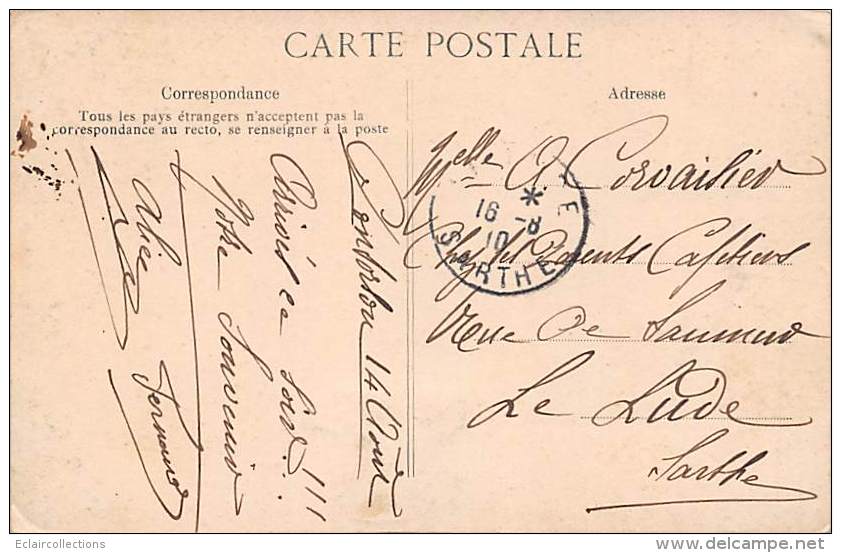 CARTE POSTALE
Correspondance
Tous les pays étrangers n'acceptent pas la
correspondance au recto, se renseigner à la poste
Adresse
14 Août
Arrivés ce soir!!!
Notre Souvenir
Alice Fernand
Melle A. Corvaisier
Chez ses Parents Cafetiers
Rue De Saumur
Le Lude
Sarthe
* E
16 -8
10
SARTHE
Eclaircollections
delcampe.net